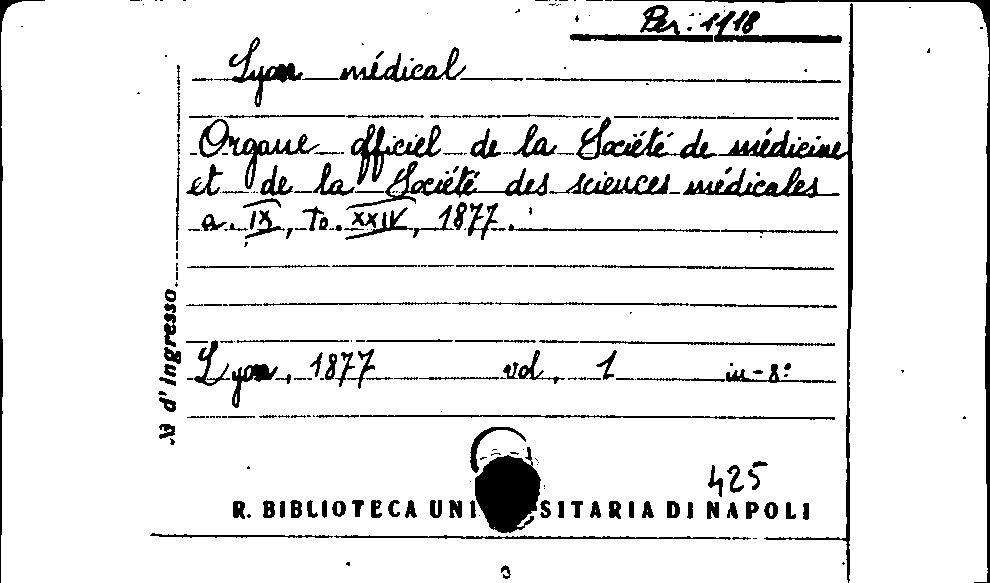 Per. 1118
Lyon médical
Organe officiel de la Société de médicine
et de la Société des sciences médicales
a. IX, to. XXIV, 1877.
Lyon, 1877 vol. 1 in-8º
No d'ingresso
425
R. BIBLIOTECA UNI SITARIA DI NAPOLI